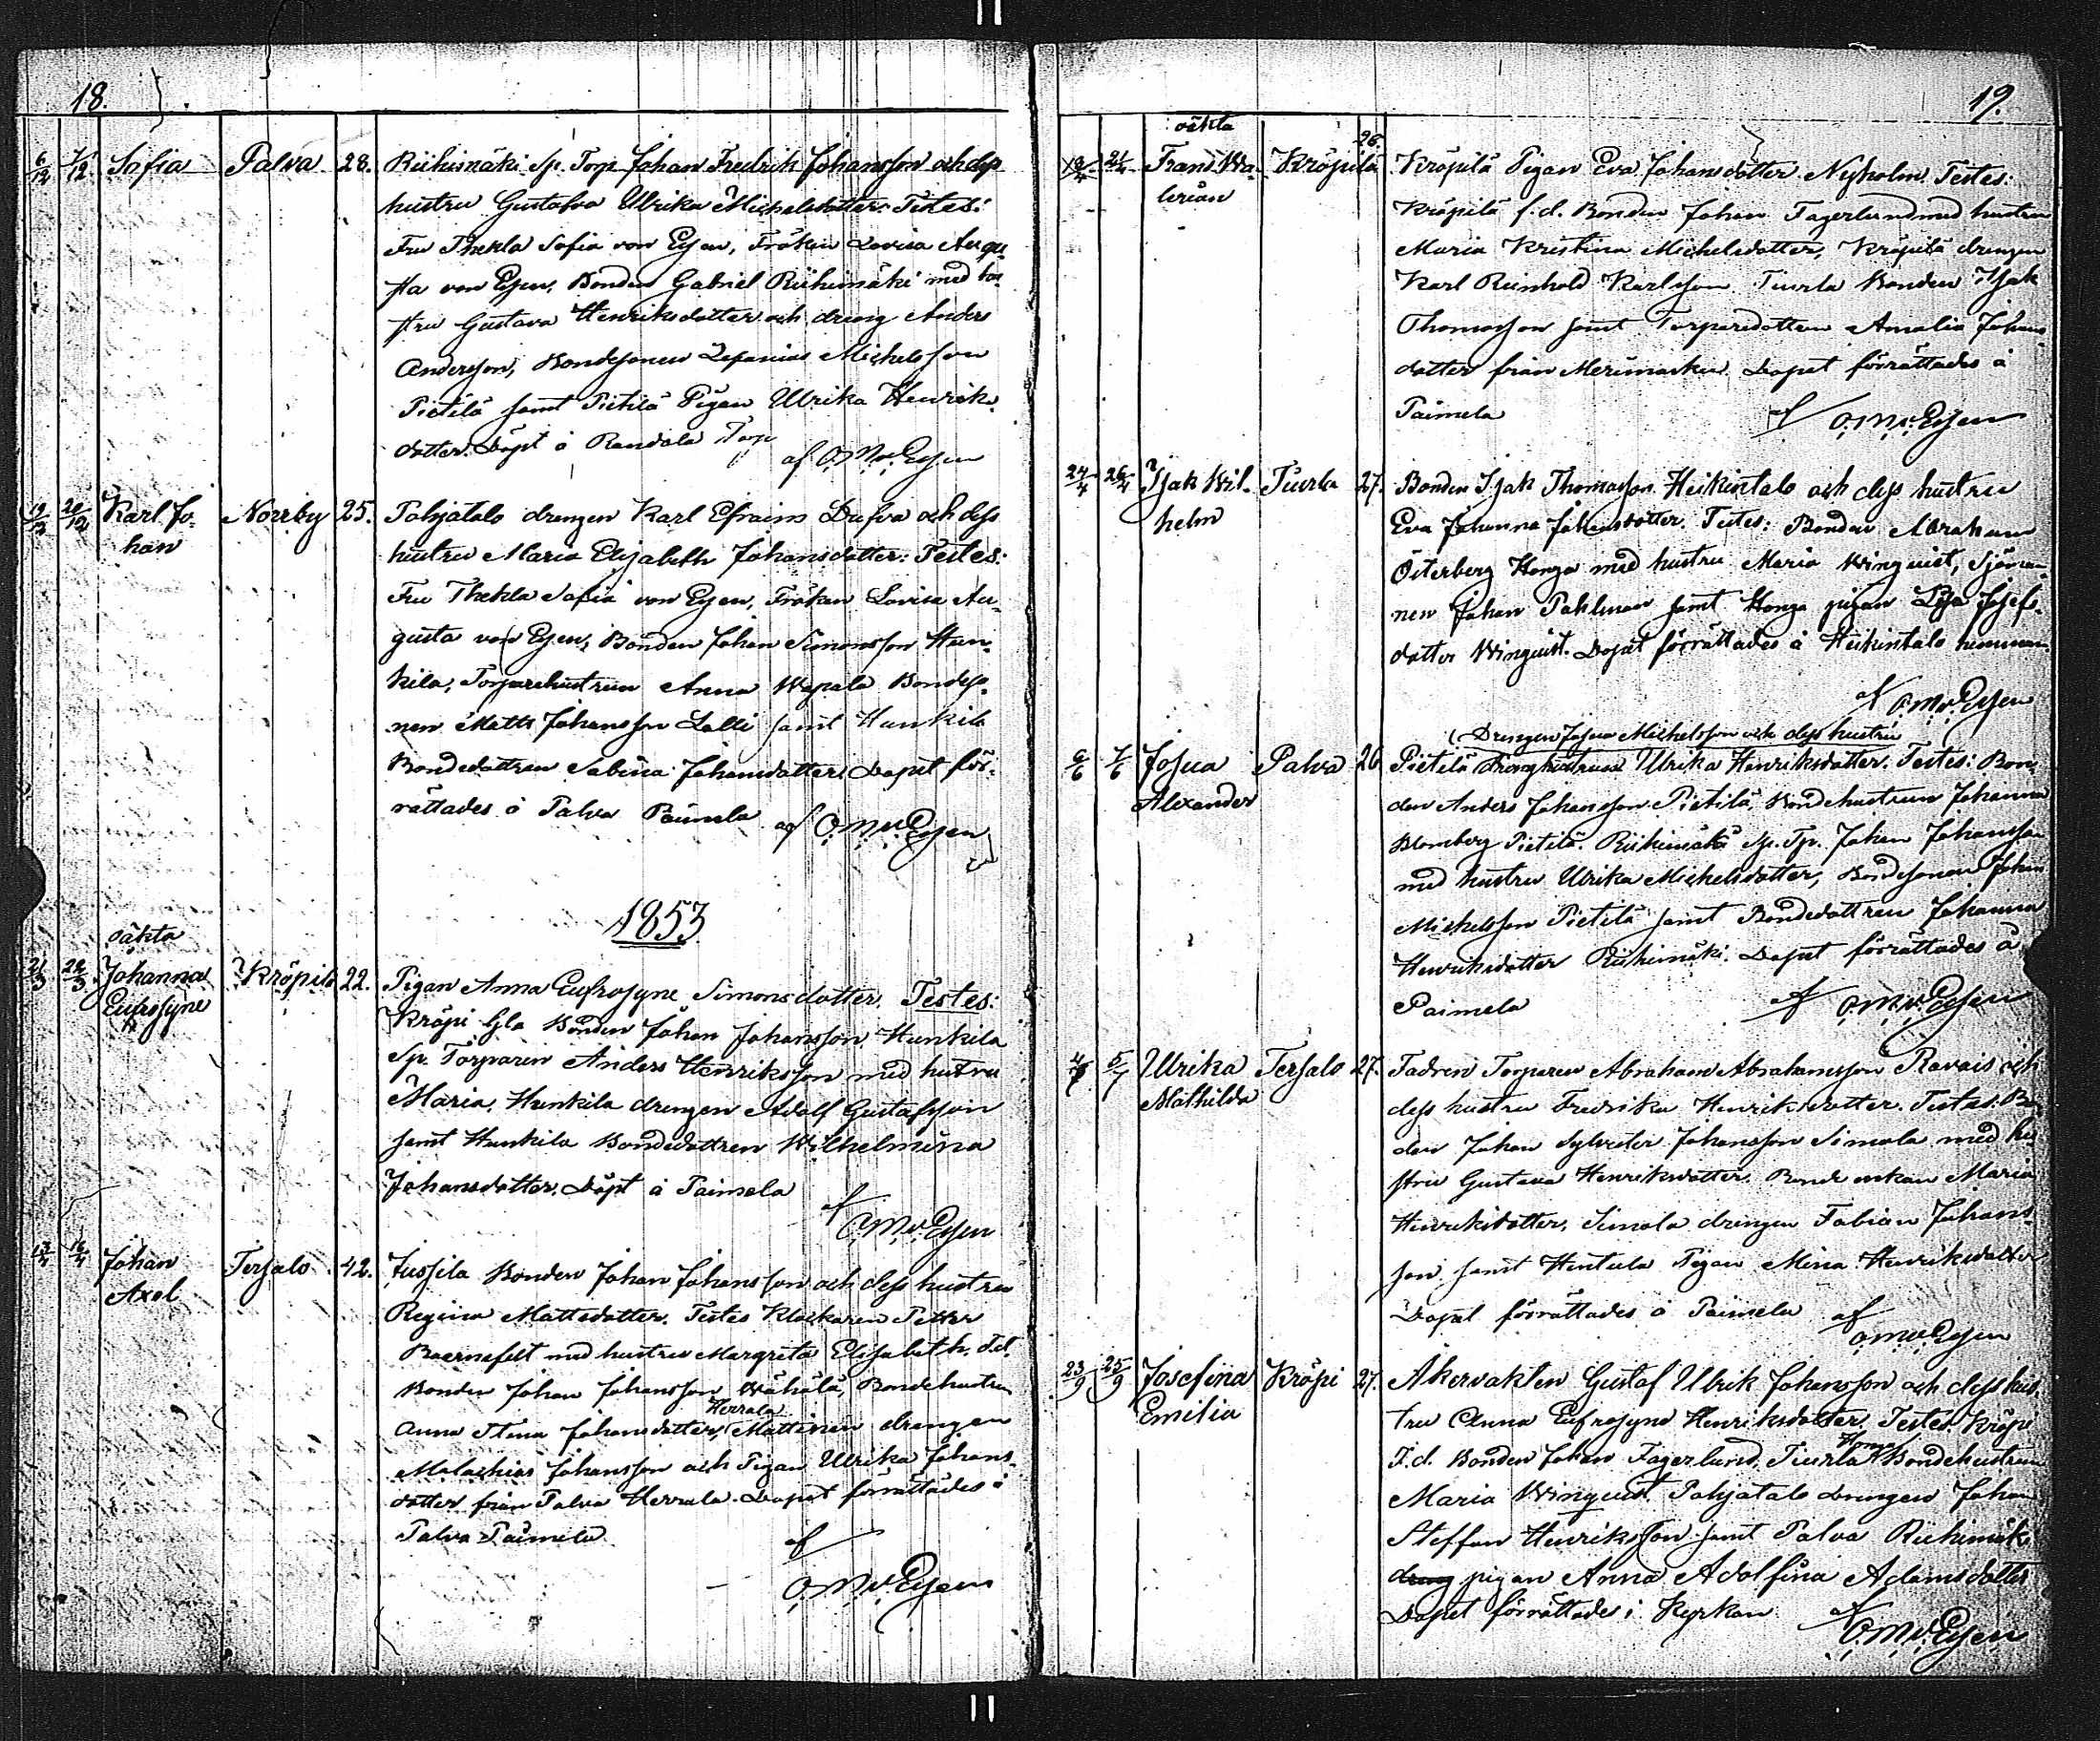 18.
6/12 7/12 Sofia Palva 28. Riihimäki Sp. Torp. Johan Fredrik Johansson och dess
hustru Gustafva Ulrika Michelsdotter. Testes:
Fru Thekla Sofia von Essen, Fröken Lovisa Augu-
sta von Essen, Bonden Gabriel Riihimäki med hu-
stru Gustava Henriksdotter och dreng Anders
Andersson, Bondesonen Zefanias Michelsson
Pietilä samt Pietilä Pigan Ulrika Henriks-
dotter. Döpt å Randala Torp
af O.M.v.Essen
19/12 20/12 Karl Jo- Norrby 25. Pahjatalo drengen Karl Efraim Dufva och dess
han hustru Maria Elisabeth Johansdotter: Testes:
Fru Thekla Sofia von Essen, Fröken Lovisa Au-
gusta von Essen, Bonden Johan Simonsson Hun-
kila, Torparehustrun Anna Wepala Bondeso-
nen Matts Johansson Lalli samt Hunkila
Bondedottren Sabina Johansdotter. Dopet för-
rättades å Palva Paimela af O.M.v.Essen
1853
oäkta
21/3 22/3 Johanna Kröpilä 22. Pigan Anna Eufrosyne Simonsdotter. Testes:
Eufrosyne Kröpi Gla Bonden Johan Johansson Hunkila
Sp. Torparen Anders Henriksson med hustru
Maria, Hunkila drengen Adolf Gustafsson
samt Hunkila Bondedottren Wilhelmina
Johansdotter. Döpt å Paimela
af
O.M.v.Essen
16/4 Johan Tersalo 42. Jussila Bonden Johan Johansson och dess hustru
Axel Regina Mattsdotter. Testes Klockaren Petter
med hustru Margreta Elisabeth.
Bonden Johan Johansson Wähälä, Bondehustru
Herrala
Anna Stina Johansdotter, Mattinen drengen
Malachias Johansson och Pigan Ulrika Johans-
dotter från Palva Herrala. Dopet förrättades å
Palva Paimela
af
O.M.v.Essen
19.
oäkta 26.
21/4 Frans Wa- Kröpilä Kröpilä Pigan Eva Johansdotter Nyholm. Testes:
lerian Kröpilä f.d. Bonden Johan Fagerlund med hustru
Maria Kristina Michelsdotter, Kröpilä drengen
Karl Reinhold Karlsson Tiurla Bonden Isak
Thomasson samt Torparedottren Amalia Johans-
dotter från Merimasku. Dopet förrättades å
Paimela af O.M.v.Essen
24/4 26/4 Isak Wil- Tiurla 27. Bonden Isak Thomasson Heikintalo och dess hustru
helm Eva Johanna Johansdotter. Testes: Bonden Abraham
Österberg Honga med hustru Maria Winquist, Sjöman-
nen Johan Pahlman samt Honga pigan Lisa Josefs-
dotter Winquist. Dopet förrättades å Heikintalo hemman
af O.M.v.Essen
(Drengen Josua Michelsson och dess hustru
6/6 7/6 Josua Palva 26 Pietilä Drenghustrun Ulrika Henriksdotter. Testes: Bon-
Alexander den Anders Johansson Pietilä, Bondehustrun Johanna
Blomberg Pietilä. Riihimäki Sp. Tp. Johan Johansson
med hustru Ulrika Michelsdotter, Bondesonen Johan
Michelsson Pietilä samt Bondedottren Johanna
Henriksdotter Riihimäki. Dopet förrättades å
Paimela af O.M.v.Essen
4/7 5/7 Ulrika Tersalo 27. Fadren Torparen Abraham Abrahamsson Ravais och
Mathilda dess hustru Fredrika Henriksdotter. Testes: Bo
den Johan Sylvester Johansson Simola med hu
stru Gustava Henriksdotter. Bonde enkan Maria
Henriksdotter, Simola drengen Fabian Johans-
son samt Hintula Pigan Mina Henriksdotter
Dopet förrättades å Paimela af
O.M.v.Essen
23/9 25/9 Josefina Kröpi 27. Åkervakten Gustaf Ulrik Johansson och dess hus-
Emilia tru Anna Eufrosyne Henriksdotter. Testes. Kröpi
Honga
F.d. Bonden Johan Fagerlund, Tiurla Bondehustrun
Maria Winquist. Pahjatalo Drengen Johan
Steffan Henriksson samt Palva Riihimäki
dreng pigan Anna Adolfina Adamsdotter
Dopet förrättades i Kyrkan af
O.M.v.Essen